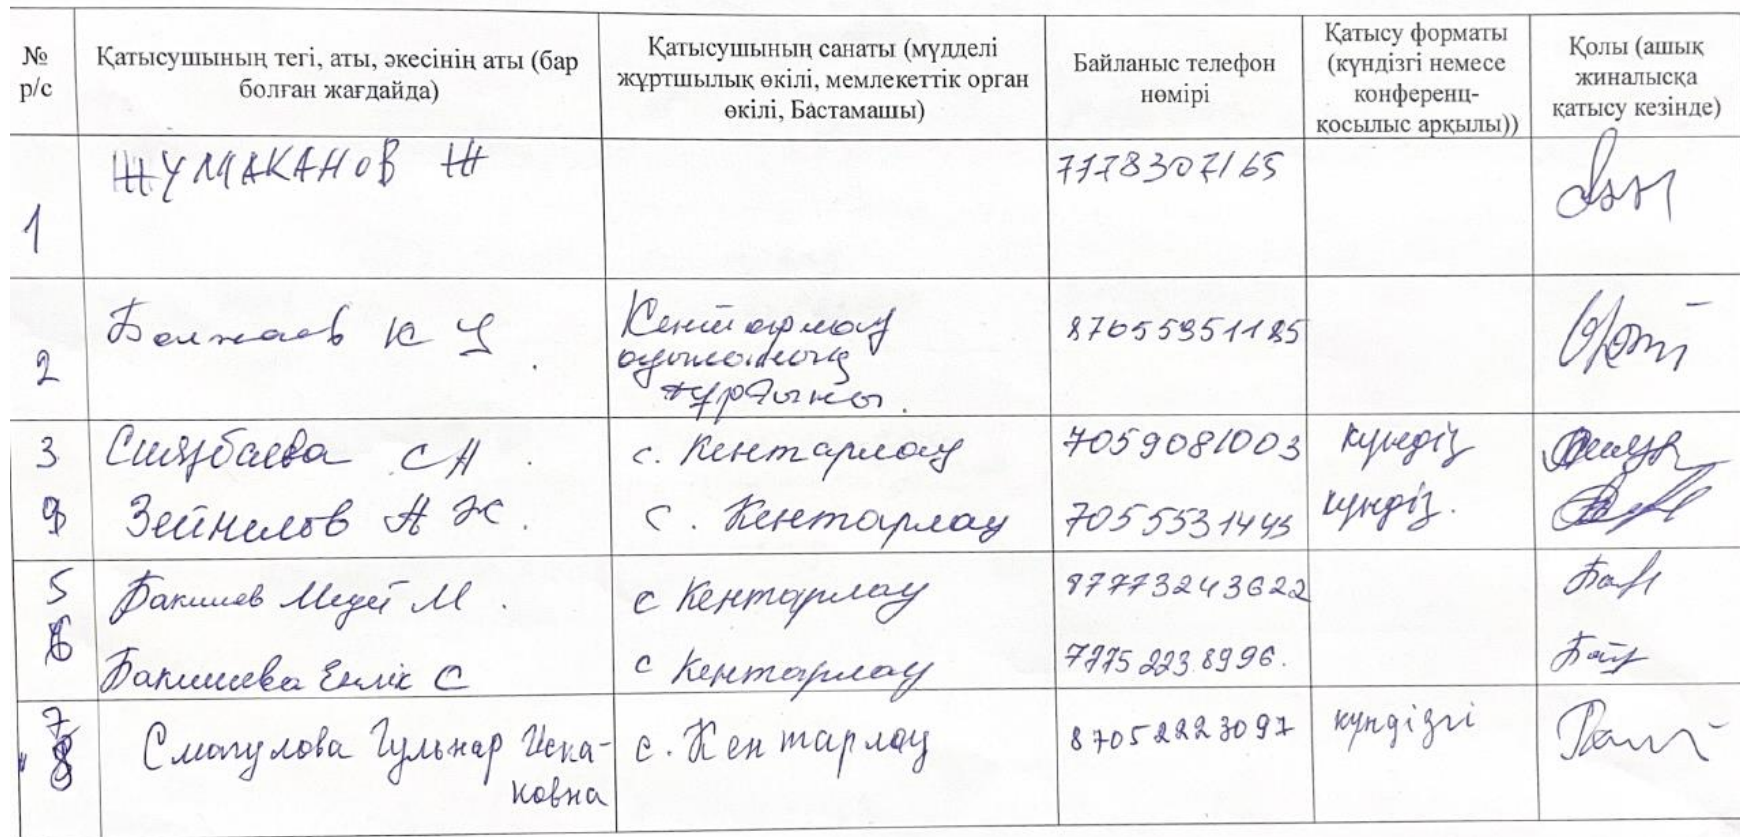 № р/с
Қатысушының тегі, аты, әкесінің аты (бар болған жағдайда)
Қатысушының санаты (мүдделі жұртшылық өкілі, мемлекеттік орган өкілі, Бастамашы)
Байланыс телефон нөмірі
Қатысу форматы (күндізгі немесе конференц-қосылыс арқылы))
Қолы (ашық жиналысқа қатысу кезінде)
1 ЖУМАКАНОВ Ж
2 К Кентарлау
ауылының
тұрғыны.
87055351185
3 СА с. Кентарлау 7059081003 күндіз
Зейнелов А Ж. с. Кентарлау 7055531445 күндіз.
5 Бакишев Медет М. с Кентарлау 87773243622
6 Бакишева Еңлік С с Кентарлау 7775 223 8996.
7 Смагулова Гульнар Иска- с. Кентарлау 87052223097 күндізгі
ковна